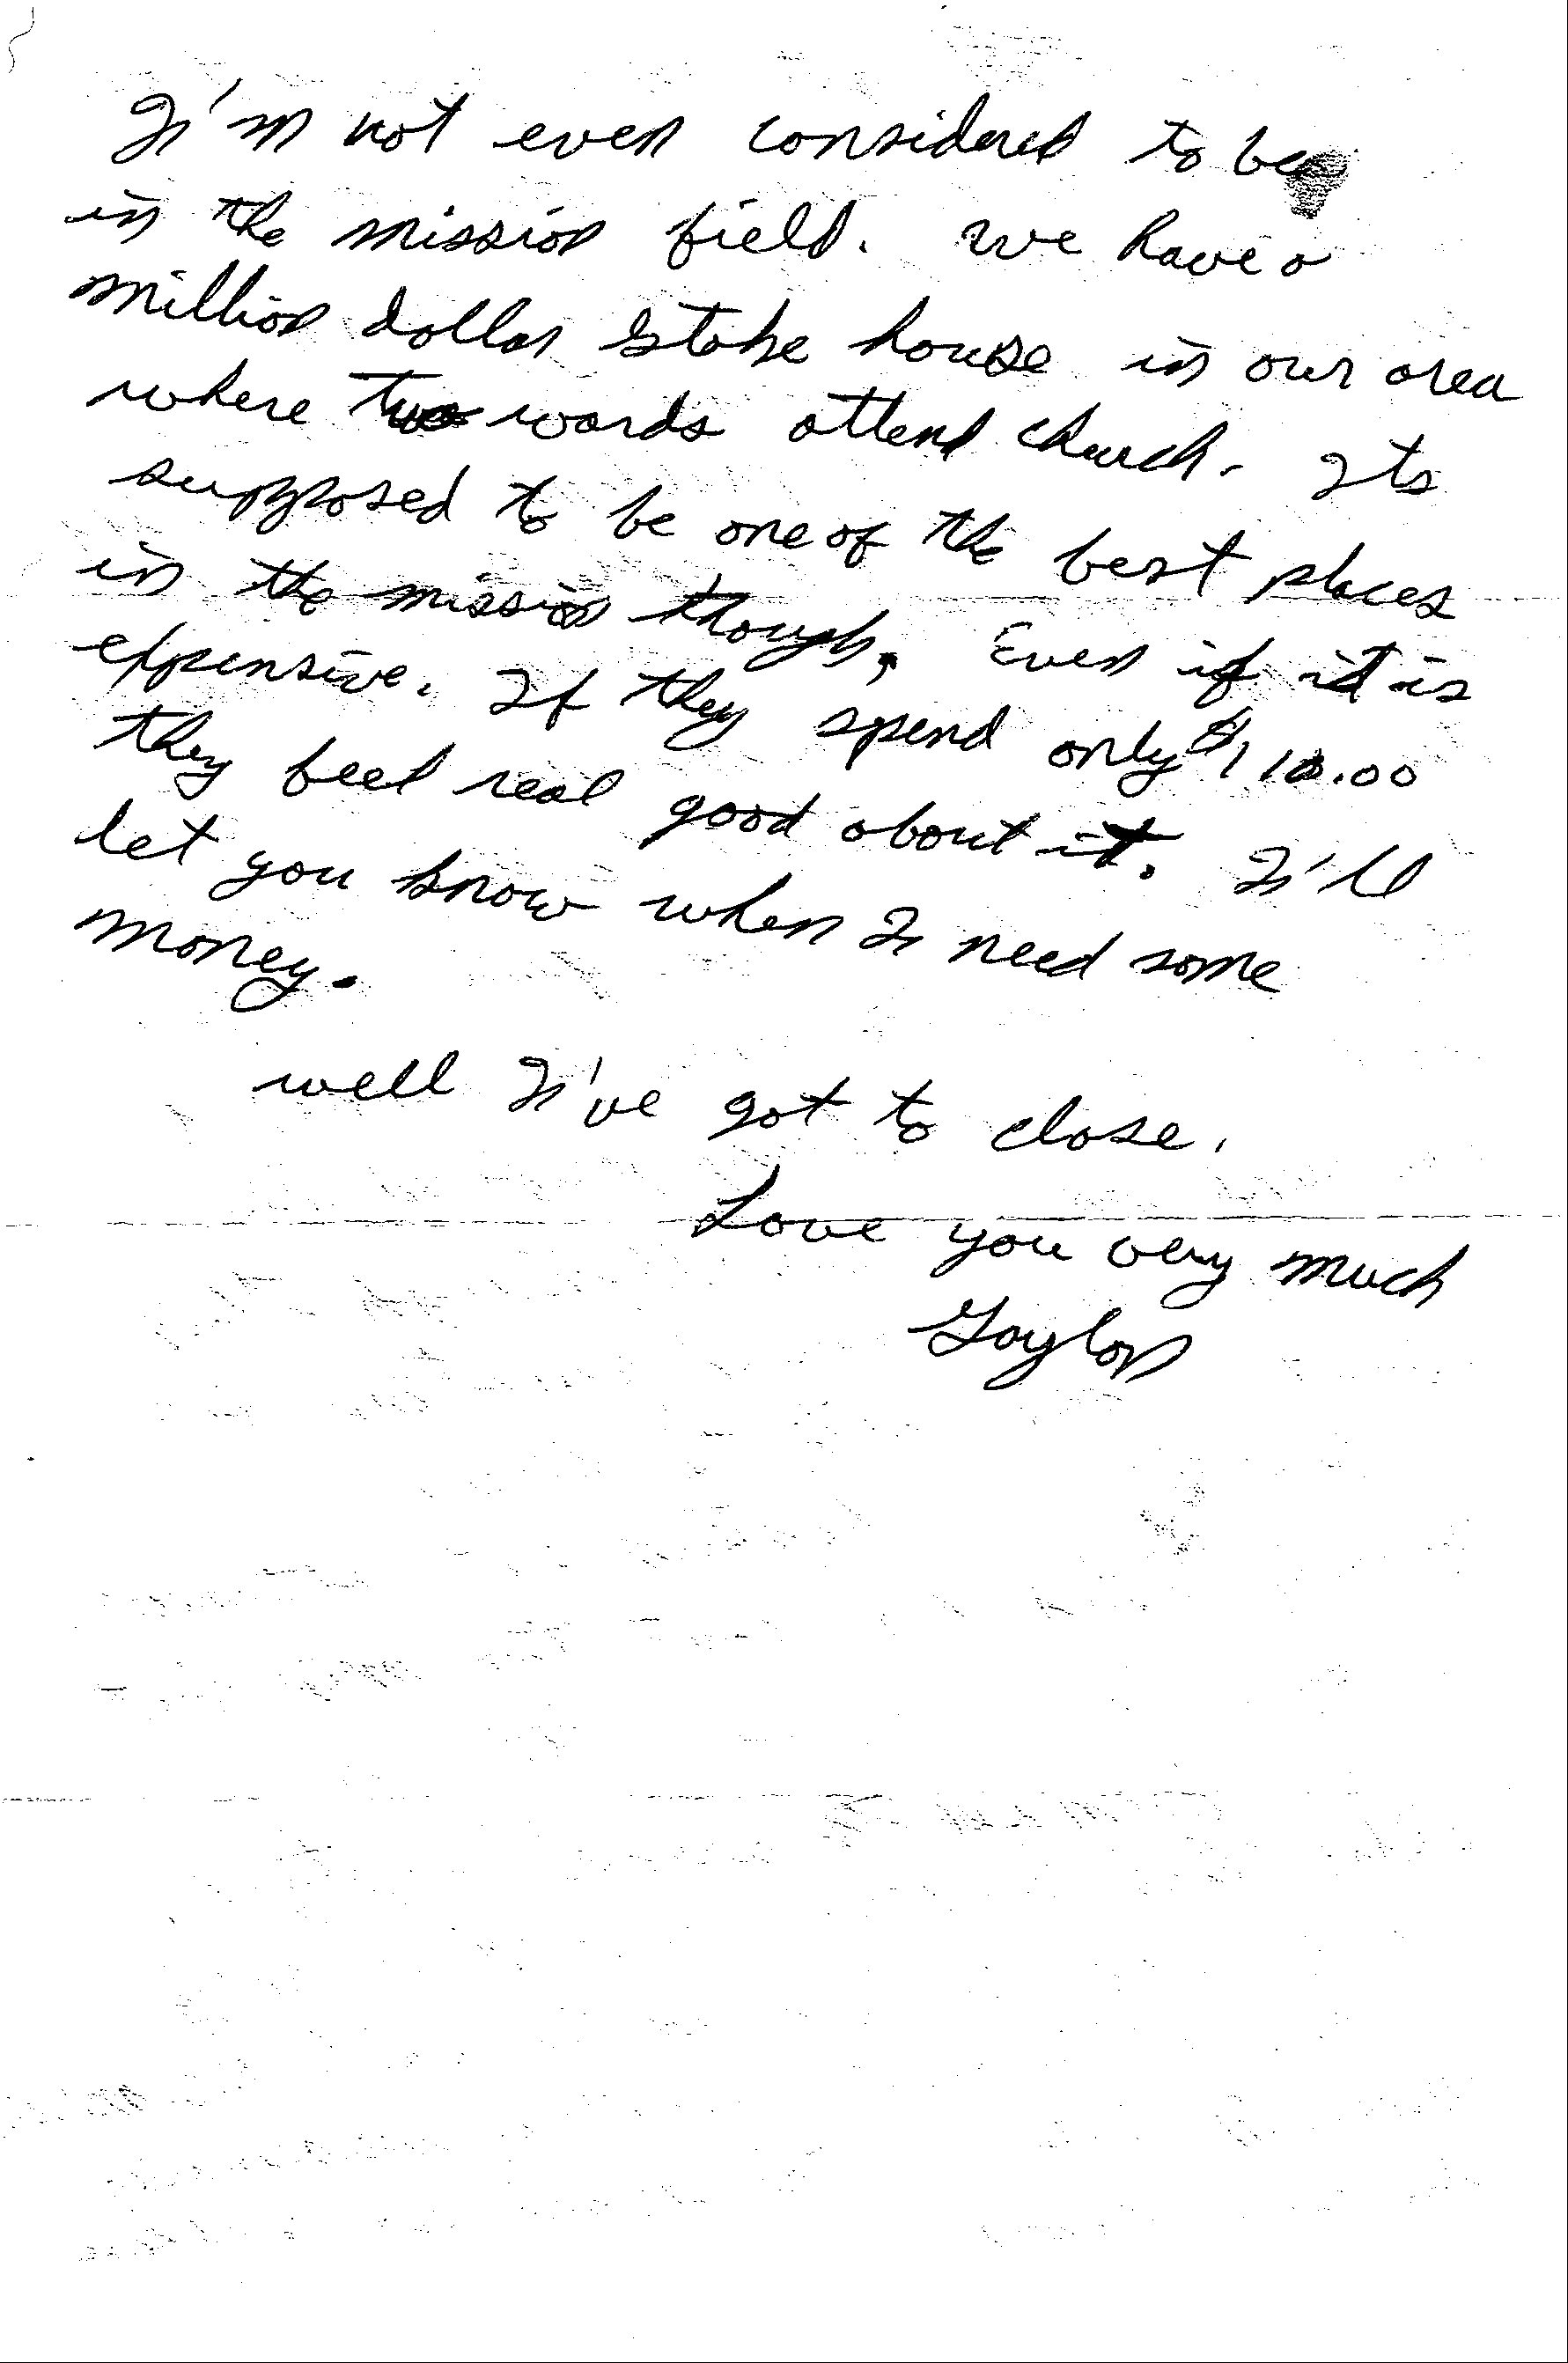 I'm not even considered to be
in the mission field. We have a
million dollar stake house in our area
where two wards attend church. Its
supposed to be one of the best places
in the mission though, Even if it is
expensive. If they spend only $110.00
they feel real good about it. I'll
let you know when I need some
money.
well I've got to close.
Love you very much
Gaylon